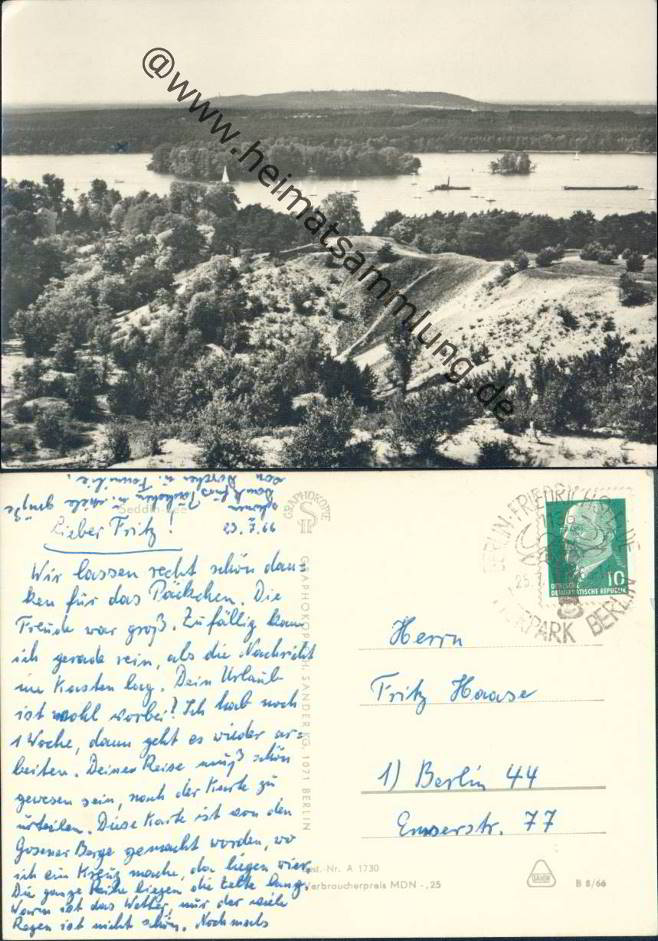 @www.heimatsammlung.de
Seddinsee
GRAPHOKOPIE
Lieber Fritz!
23.7.66
Wir lassen recht schön dan=
ken für das Päckchen. Die
Freude war groß. Zufällig kam
ich gerade rein, als die Nachricht
im Kasten lag. Dein Urlaub
ist wohl vorbei? Ich hab noch
1 Woche, dann geht es wieder ar=
beiten. Deine Reise muß schön
gewesen sein, nach der Karte zu
urteilen. Diese Karte ist von den
Gosener Berge gemacht worden, wo
ich ein Kreuz mache, da liegen wir.
Die ganze Reihe liegen die Zelte lang.
Warm ist das Wetter, nur der viele
Regen ist nicht schön. Nochmals
Dank fürs Päckchen u. viele Grüße
von
u. Familie.
GRAPHOKOPIE H. SANDER KG, 1071 BERLIN
BERLIN-FRIEDRICHSFELDE
TIERPARK BERLIN
DEUTSCHE
DEMOKRATISCHE REPUBLIK
10
Herrn
Fritz Haase
1) Berlin 44
Emserstr. 77
Best. Nr. A 1730
Verbraucherpreis MDN -,25
B 8/66